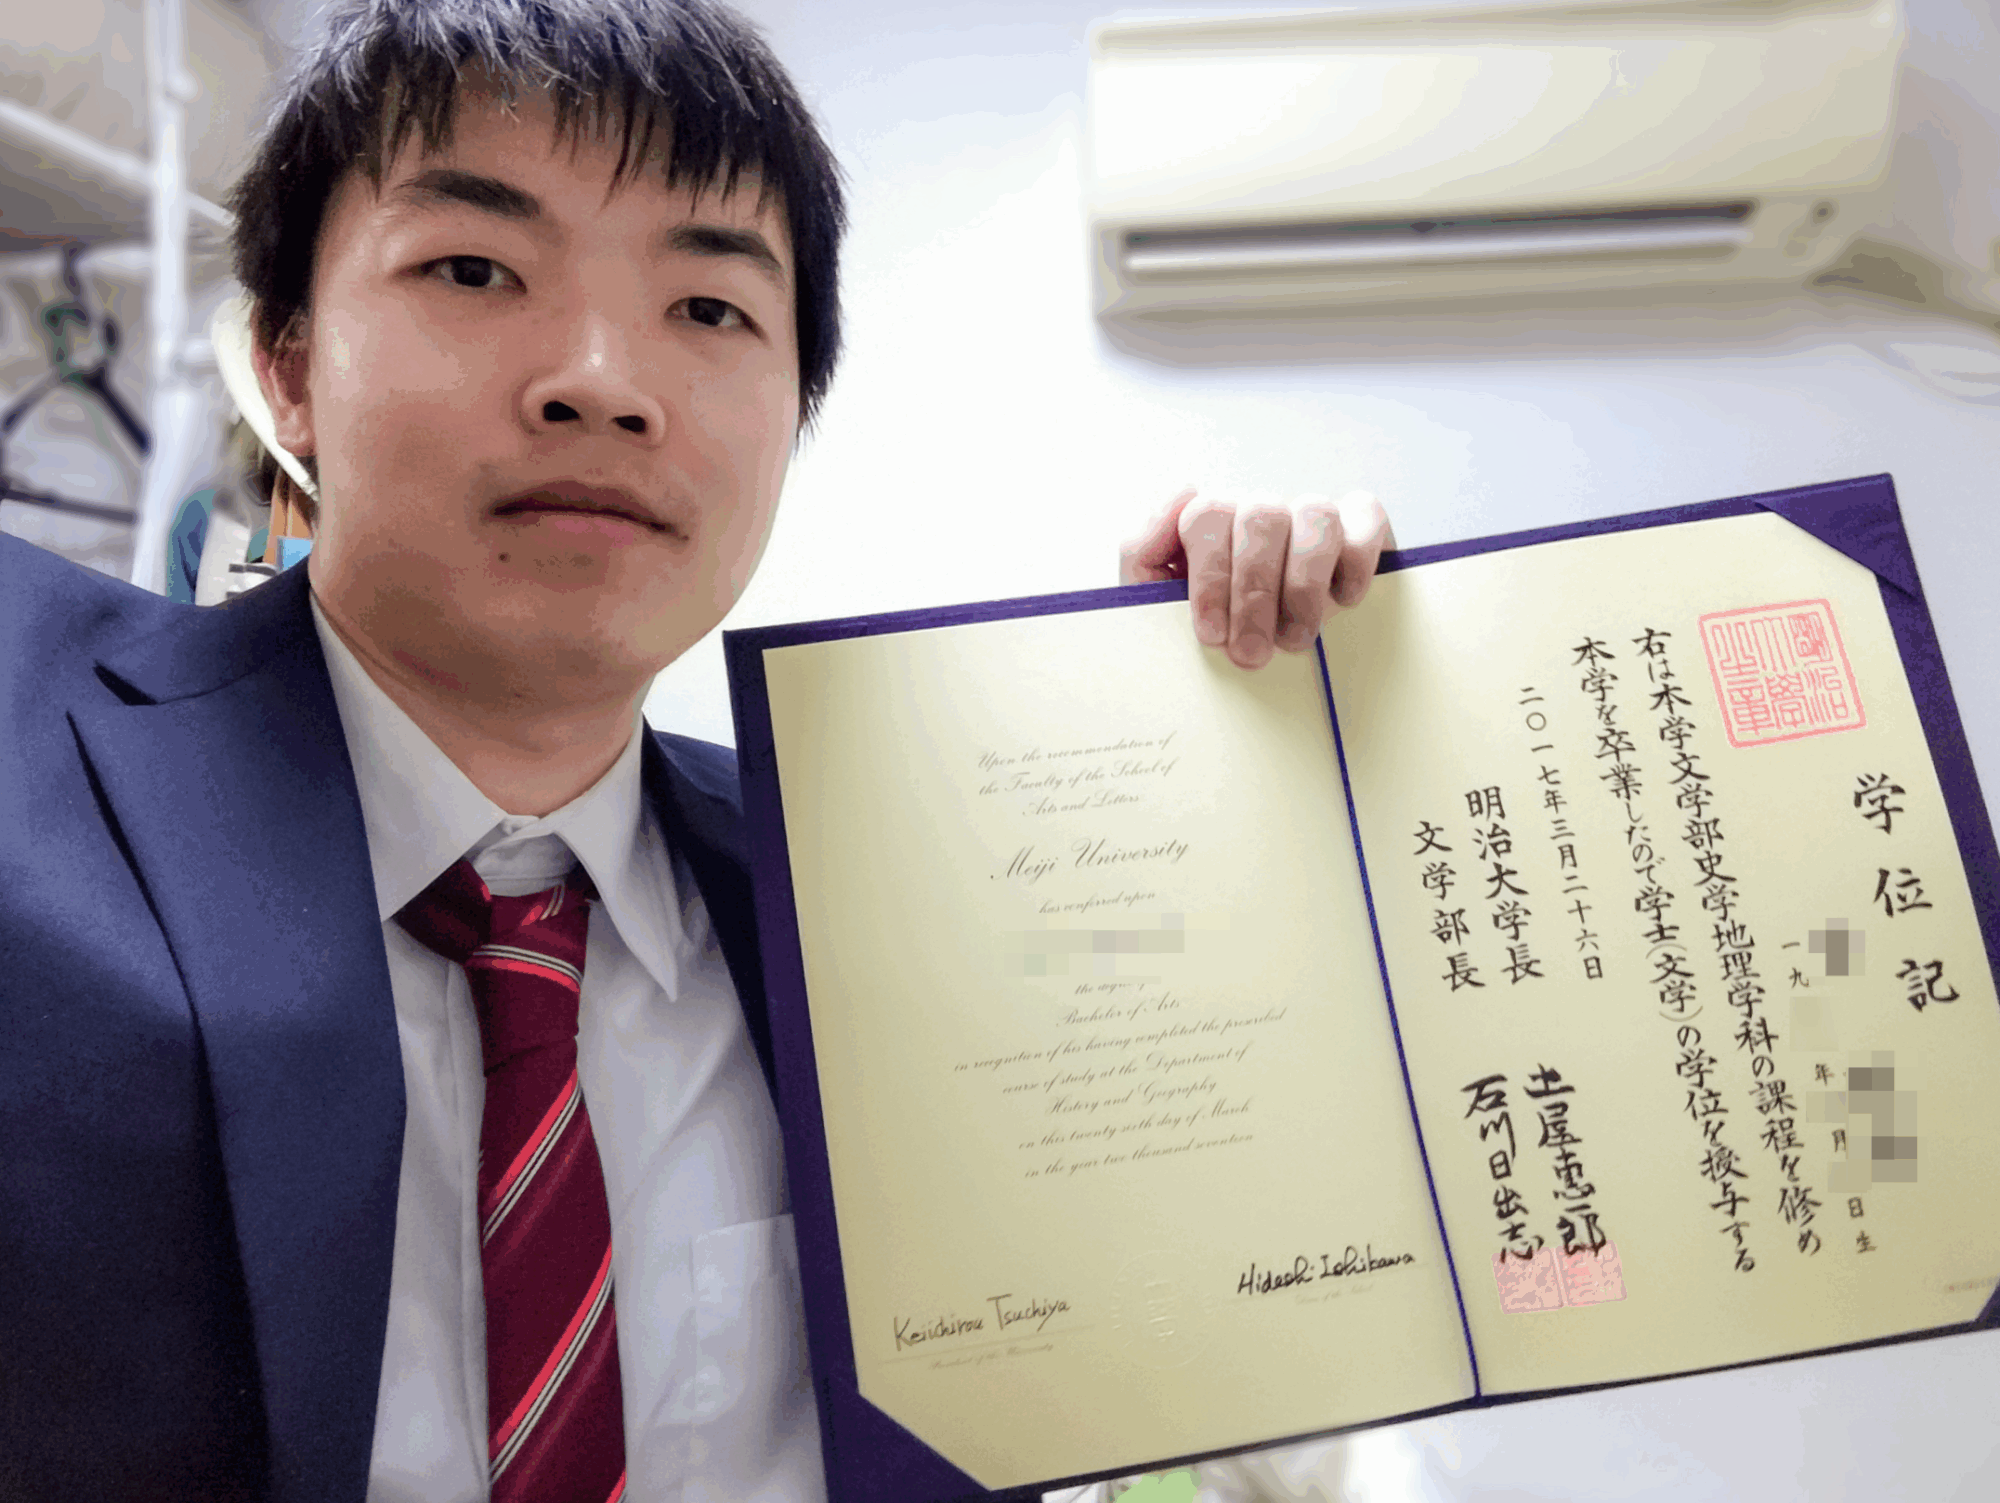 Upon the recommendation of
the Faculty of the School of
Arts and Letters
Meiji University
has conferred upon
the degree of
Bachelor of Arts
in recognition of his having completed the prescribed
course of study at the Department of
History and Geography
on this twenty sixth day of March
in the year two thousand seventeen
Keiichirou Tsuchiya
President of the University
Hideshi Ishikawa
Dean of the School
明治大學之章
学位記
一九 年 月 日生
右は本学文学部史学地理学科の課程を修め
本学を卒業したので学士(文学)の学位を授与する
二〇一七年三月二十六日
明治大学長 土屋恵一郎
文学部長 石川日出志